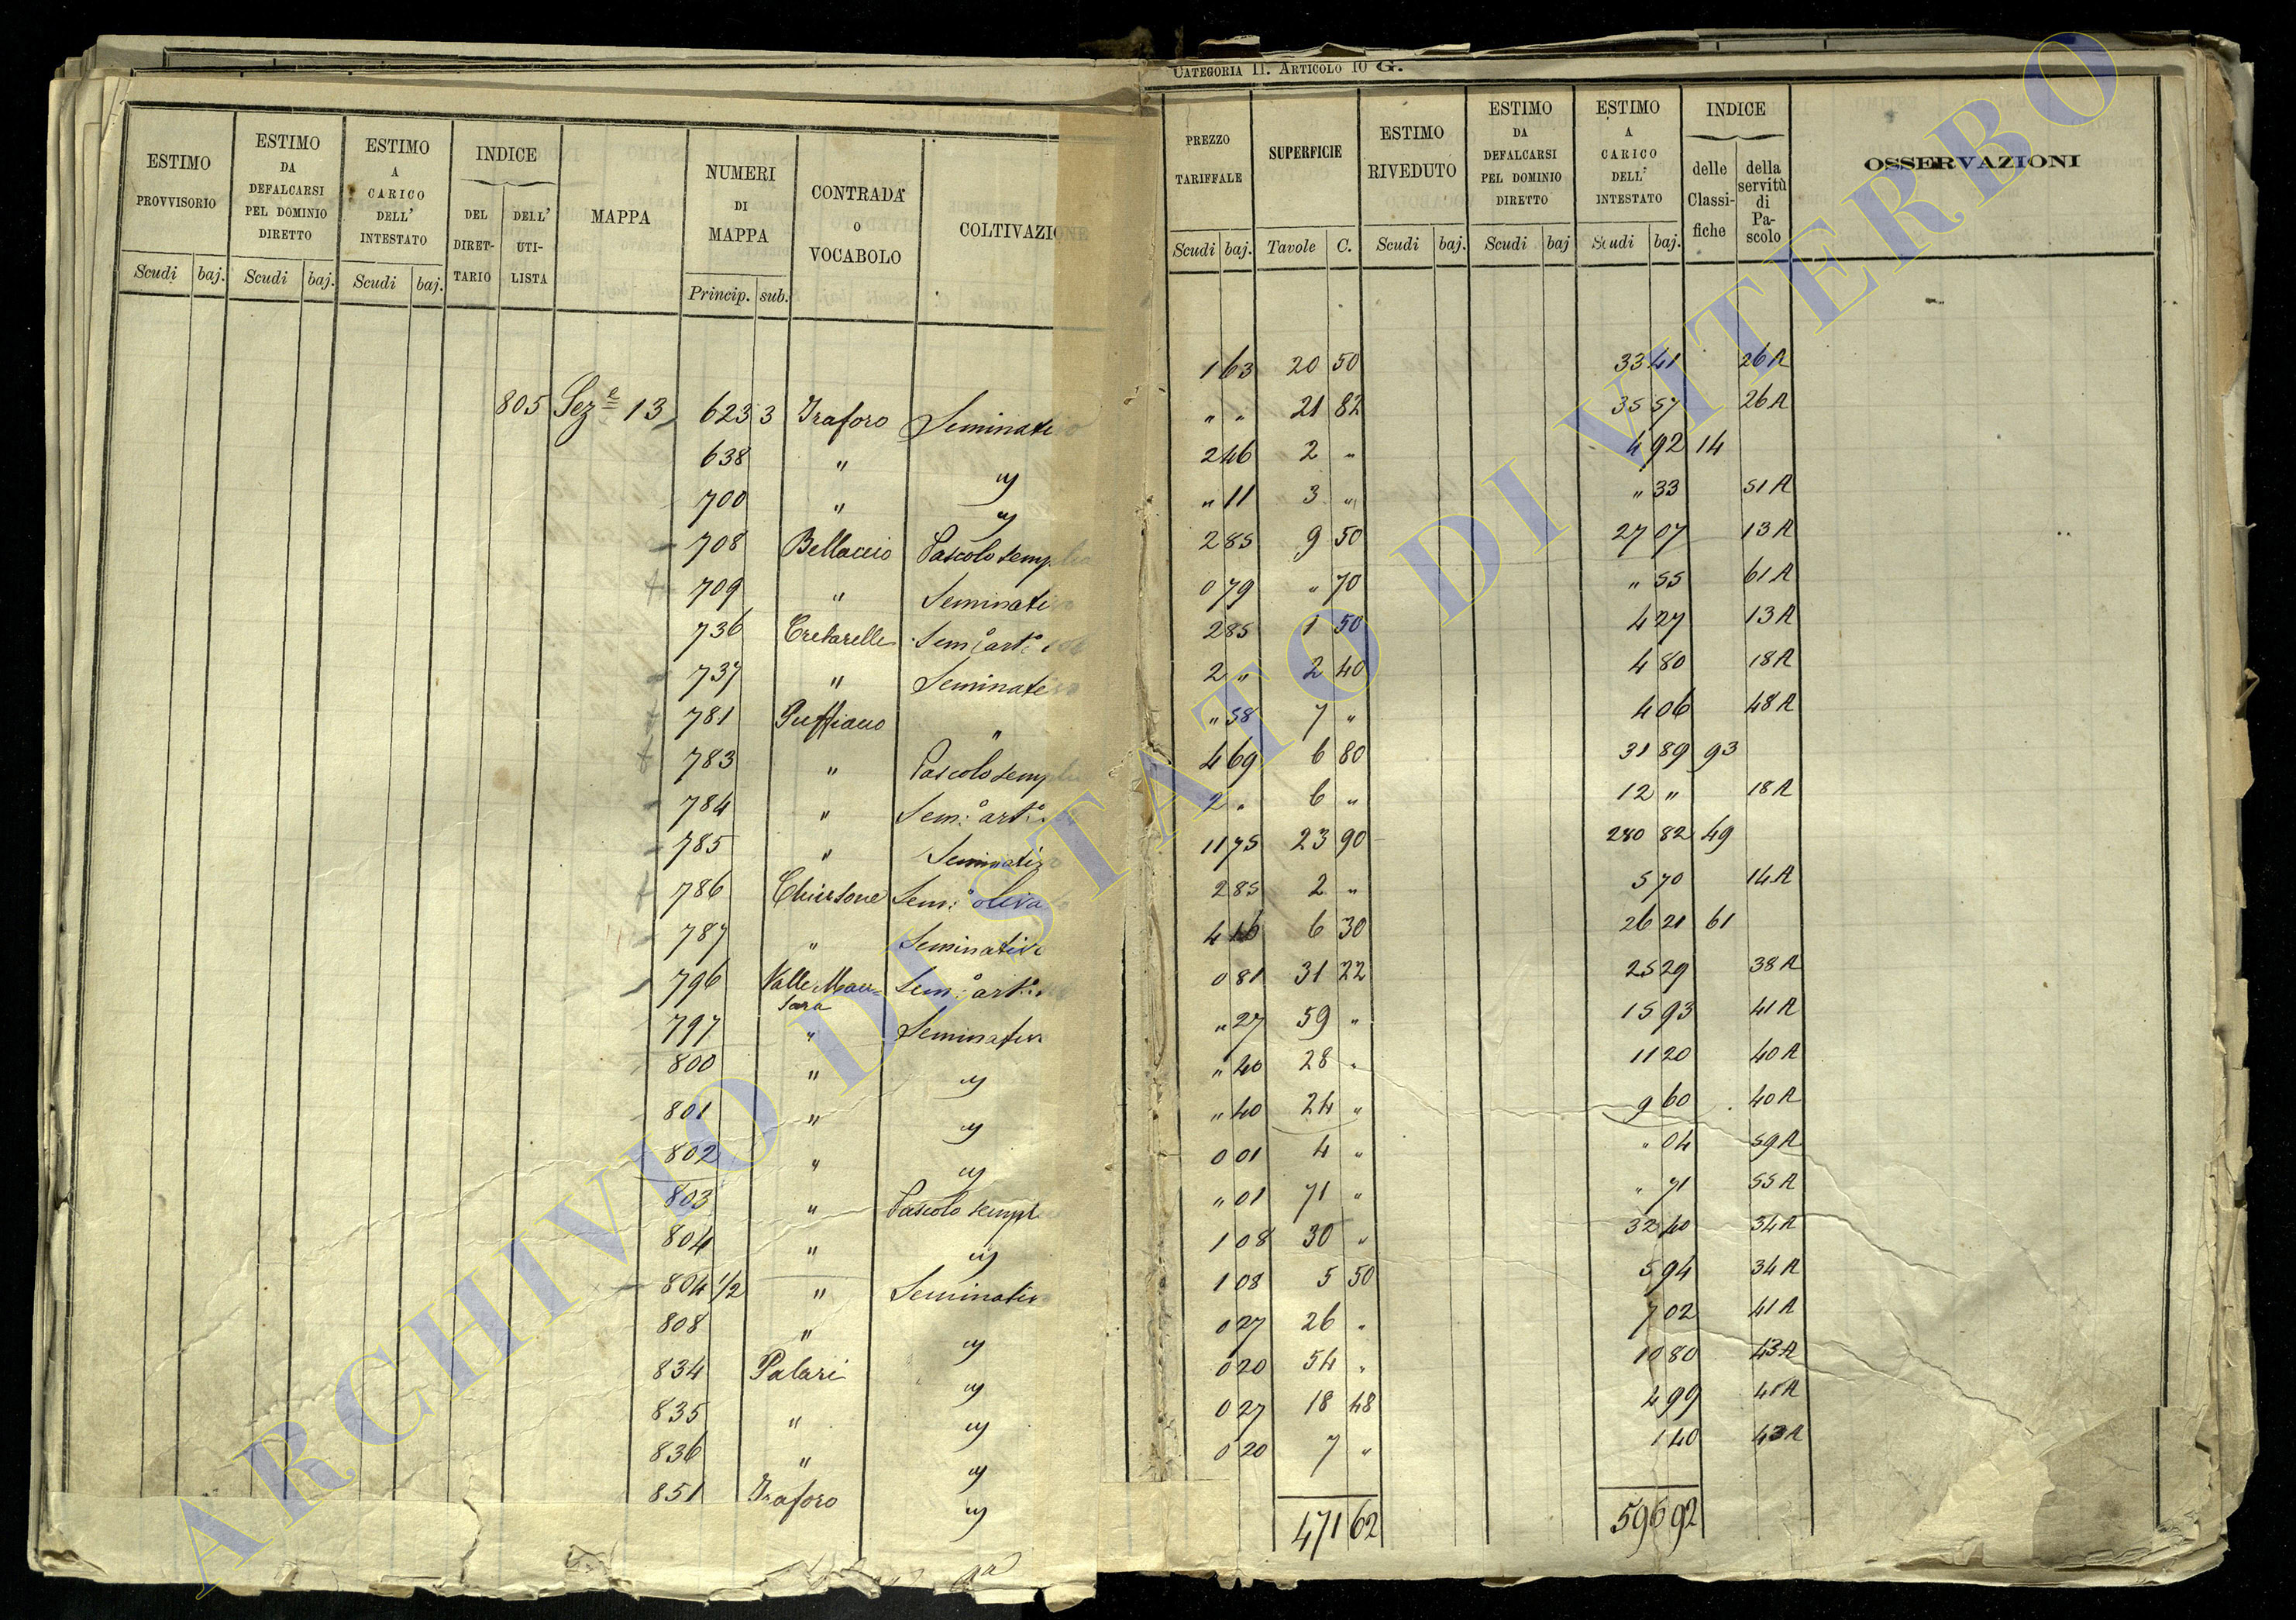 CATEGORIA II. ARTICOLO 10 G.
ESTIMO PROVVISORIO | ESTIMO DA DEFALCARSI PEL DOMINIO DIRETTO | ESTIMO A CARICO DELL' INTESTATO | INDICE | MAPPA | NUMERI DI MAPPA | CONTRADA o VOCABOLO | COLTIVAZIONE
Scudi baj. | Scudi baj. | Scudi baj. | DEL DIRETTARIO | DELL' UTILISTA | Princip. sub.
805 Sez.e 13 623 3 Traforo Seminativo
638 " "
700 " "
708 Bellaccio Pascolo semplice
709 " Seminativo
736 Cretarelle Sem.o art.o
737 " Seminativo
781 Puffiano "
783 " Pascolo semplice
784 " Sem.o art.o
785 " Seminativo
786 Chiusone Sem.o olivato
787 " Seminativo
796 Valle Mau= Sem.o art.o
797 " Seminativo
800 " "
801 " "
802 " "
803 " Pascolo semplice
804 " "
804 1/2 " Seminativo
808 " "
834 Palari "
835 " "
836 " "
851 Traforo "
PREZZO TARIFFALE | SUPERFICIE | ESTIMO RIVEDUTO | ESTIMO DA DEFALCARSI PEL DOMINIO DIRETTO | ESTIMO A CARICO DELL' INTESTATO | INDICE | OSSERVAZIONI
Scudi baj. | Tavole C. | Scudi baj. | Scudi baj | Scudi baj. | delle Classifiche | della servitù di Pascolo
1 63 20 50 33 41 26A
" " 21 82 35 57 26A
2 46 2 " 4 92 14
" 11 3 " " 33 51A
2 85 9 50 27 07 13A
0 79 " 70 " 55 61A
2 85 1 50 4 27 13A
2 " 2 40 4 80 18A
" 58 7 " 4 06 48A
4 69 6 80 31 89 93
2 " 6 " 12 " 18A
11 75 23 90 280 82 49
2 85 2 " 5 70 14A
4 16 6 30 26 21 61
0 81 31 22 25 29 38A
" 27 59 " 15 93 41A
" 40 28 " 11 20 40A
" 40 24 " 9 60 40A
0 01 4 " " 04 59A
" 01 71 " " 71 55A
1 08 30 " 32 40 34A
1 08 5 50 5 94 34A
0 27 26 " 7 02 41A
0 20 54 " 10 80 43A
0 27 18 48 4 99 41A
0 20 7 " 1 40 43A
471 62 596 92
ARCHIVIO DI STATO DI VITERBO